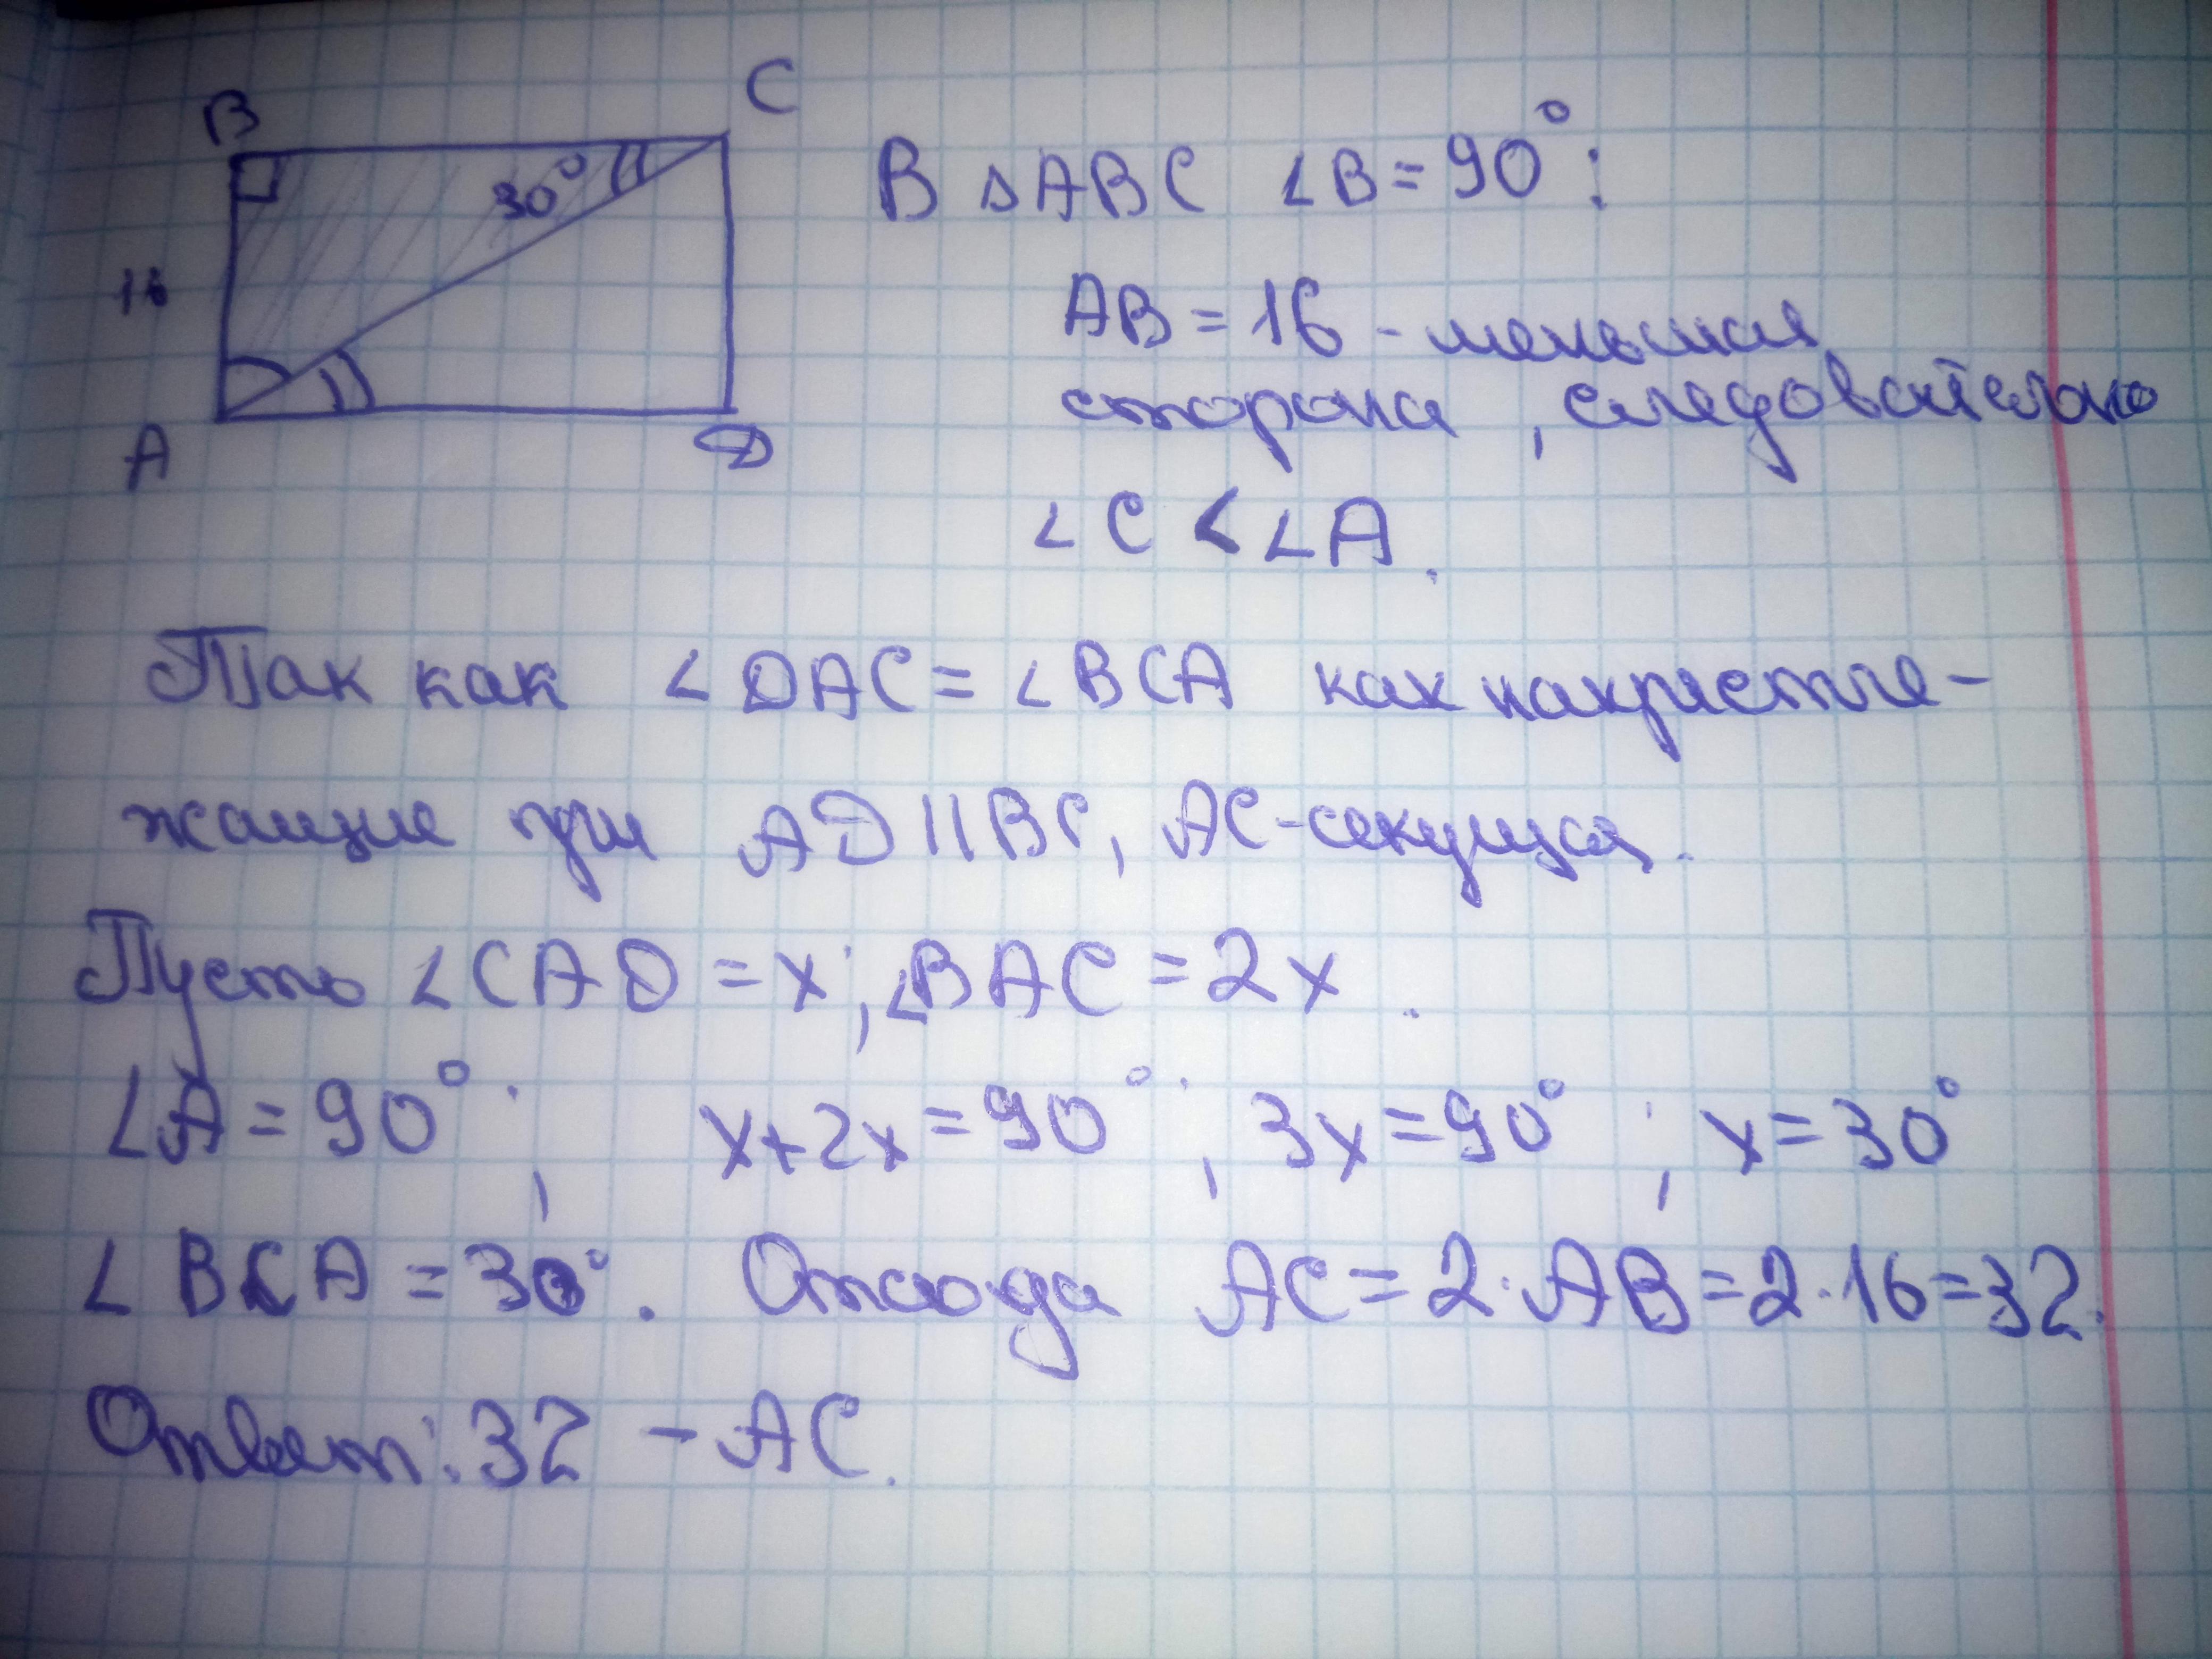 B
C
30°
16
A
D
В ΔABC ∠B=90°:
AB=16 - меньшая
сторона, следовательно
∠C < ∠A.
Так как ∠DAC=∠BCA как накрестле-
жащие при AD||BC, AC-секущая.
Пусть ∠CAD=x; ∠BAC=2x.
∠A=90°; x+2x=90°; 3x=90°; x=30°
∠BCA=30°. Отсюда AC=2·AB=2·16=32.
Ответ: 32 - AC.